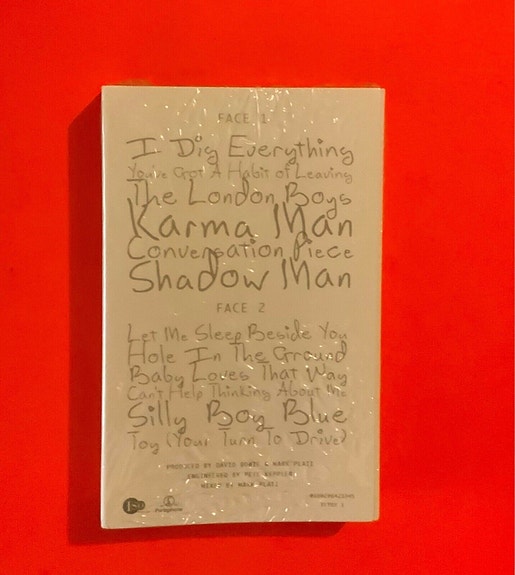 FACE 1
I Dig Everything
You've Got A Habit of Leaving
The London Boys
Karma Man
Conversation Piece
Shadow Man
FACE 2
Let Me Sleep Beside You
Hole In The Ground
Baby Loves That Way
Can't Help Thinking About Me
Silly Boy Blue
Toy (Your Turn To Drive)
PRODUCED BY DAVID BOWIE & MARK PLATI
ENGINEERED BY PETE KEPPLER
MIXED BY MARK PLATI
ISO
Parlophone